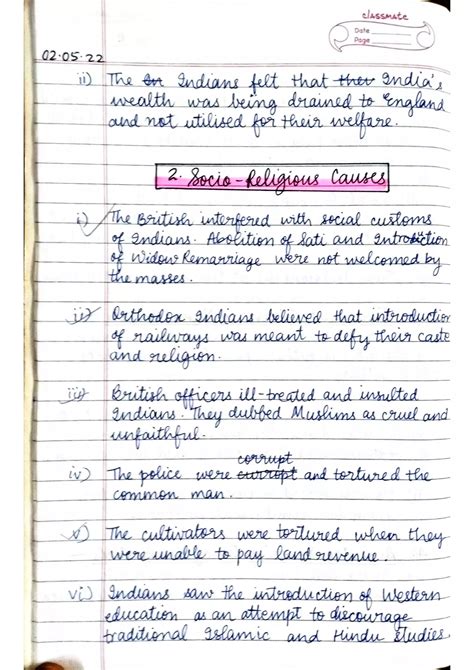 classmate
Date
Page
02.05.22
ii) The Indians felt that India's
wealth was being drained to England
and not utilised for their welfare.
2. Socio-Religious Causes
i) The British interfered with social customs
of Indians. Abolition of Sati and Introduction
of Widow Remarriage were not welcomed by
the masses.
ii) Orthodox Indians believed that introduction
of railways was meant to defy their caste
and religion.
iii) British officers ill-treated and insulted
Indians. They dubbed Muslims as cruel and
unfaithful.
corrupt
iv) The police were curropt and tortured the
common man.
v) The cultivators were tortured when they
were unable to pay land revenue.
vi) Indians saw the introduction of Western
education as an attempt to discourage
traditional Islamic and Hindu studies.